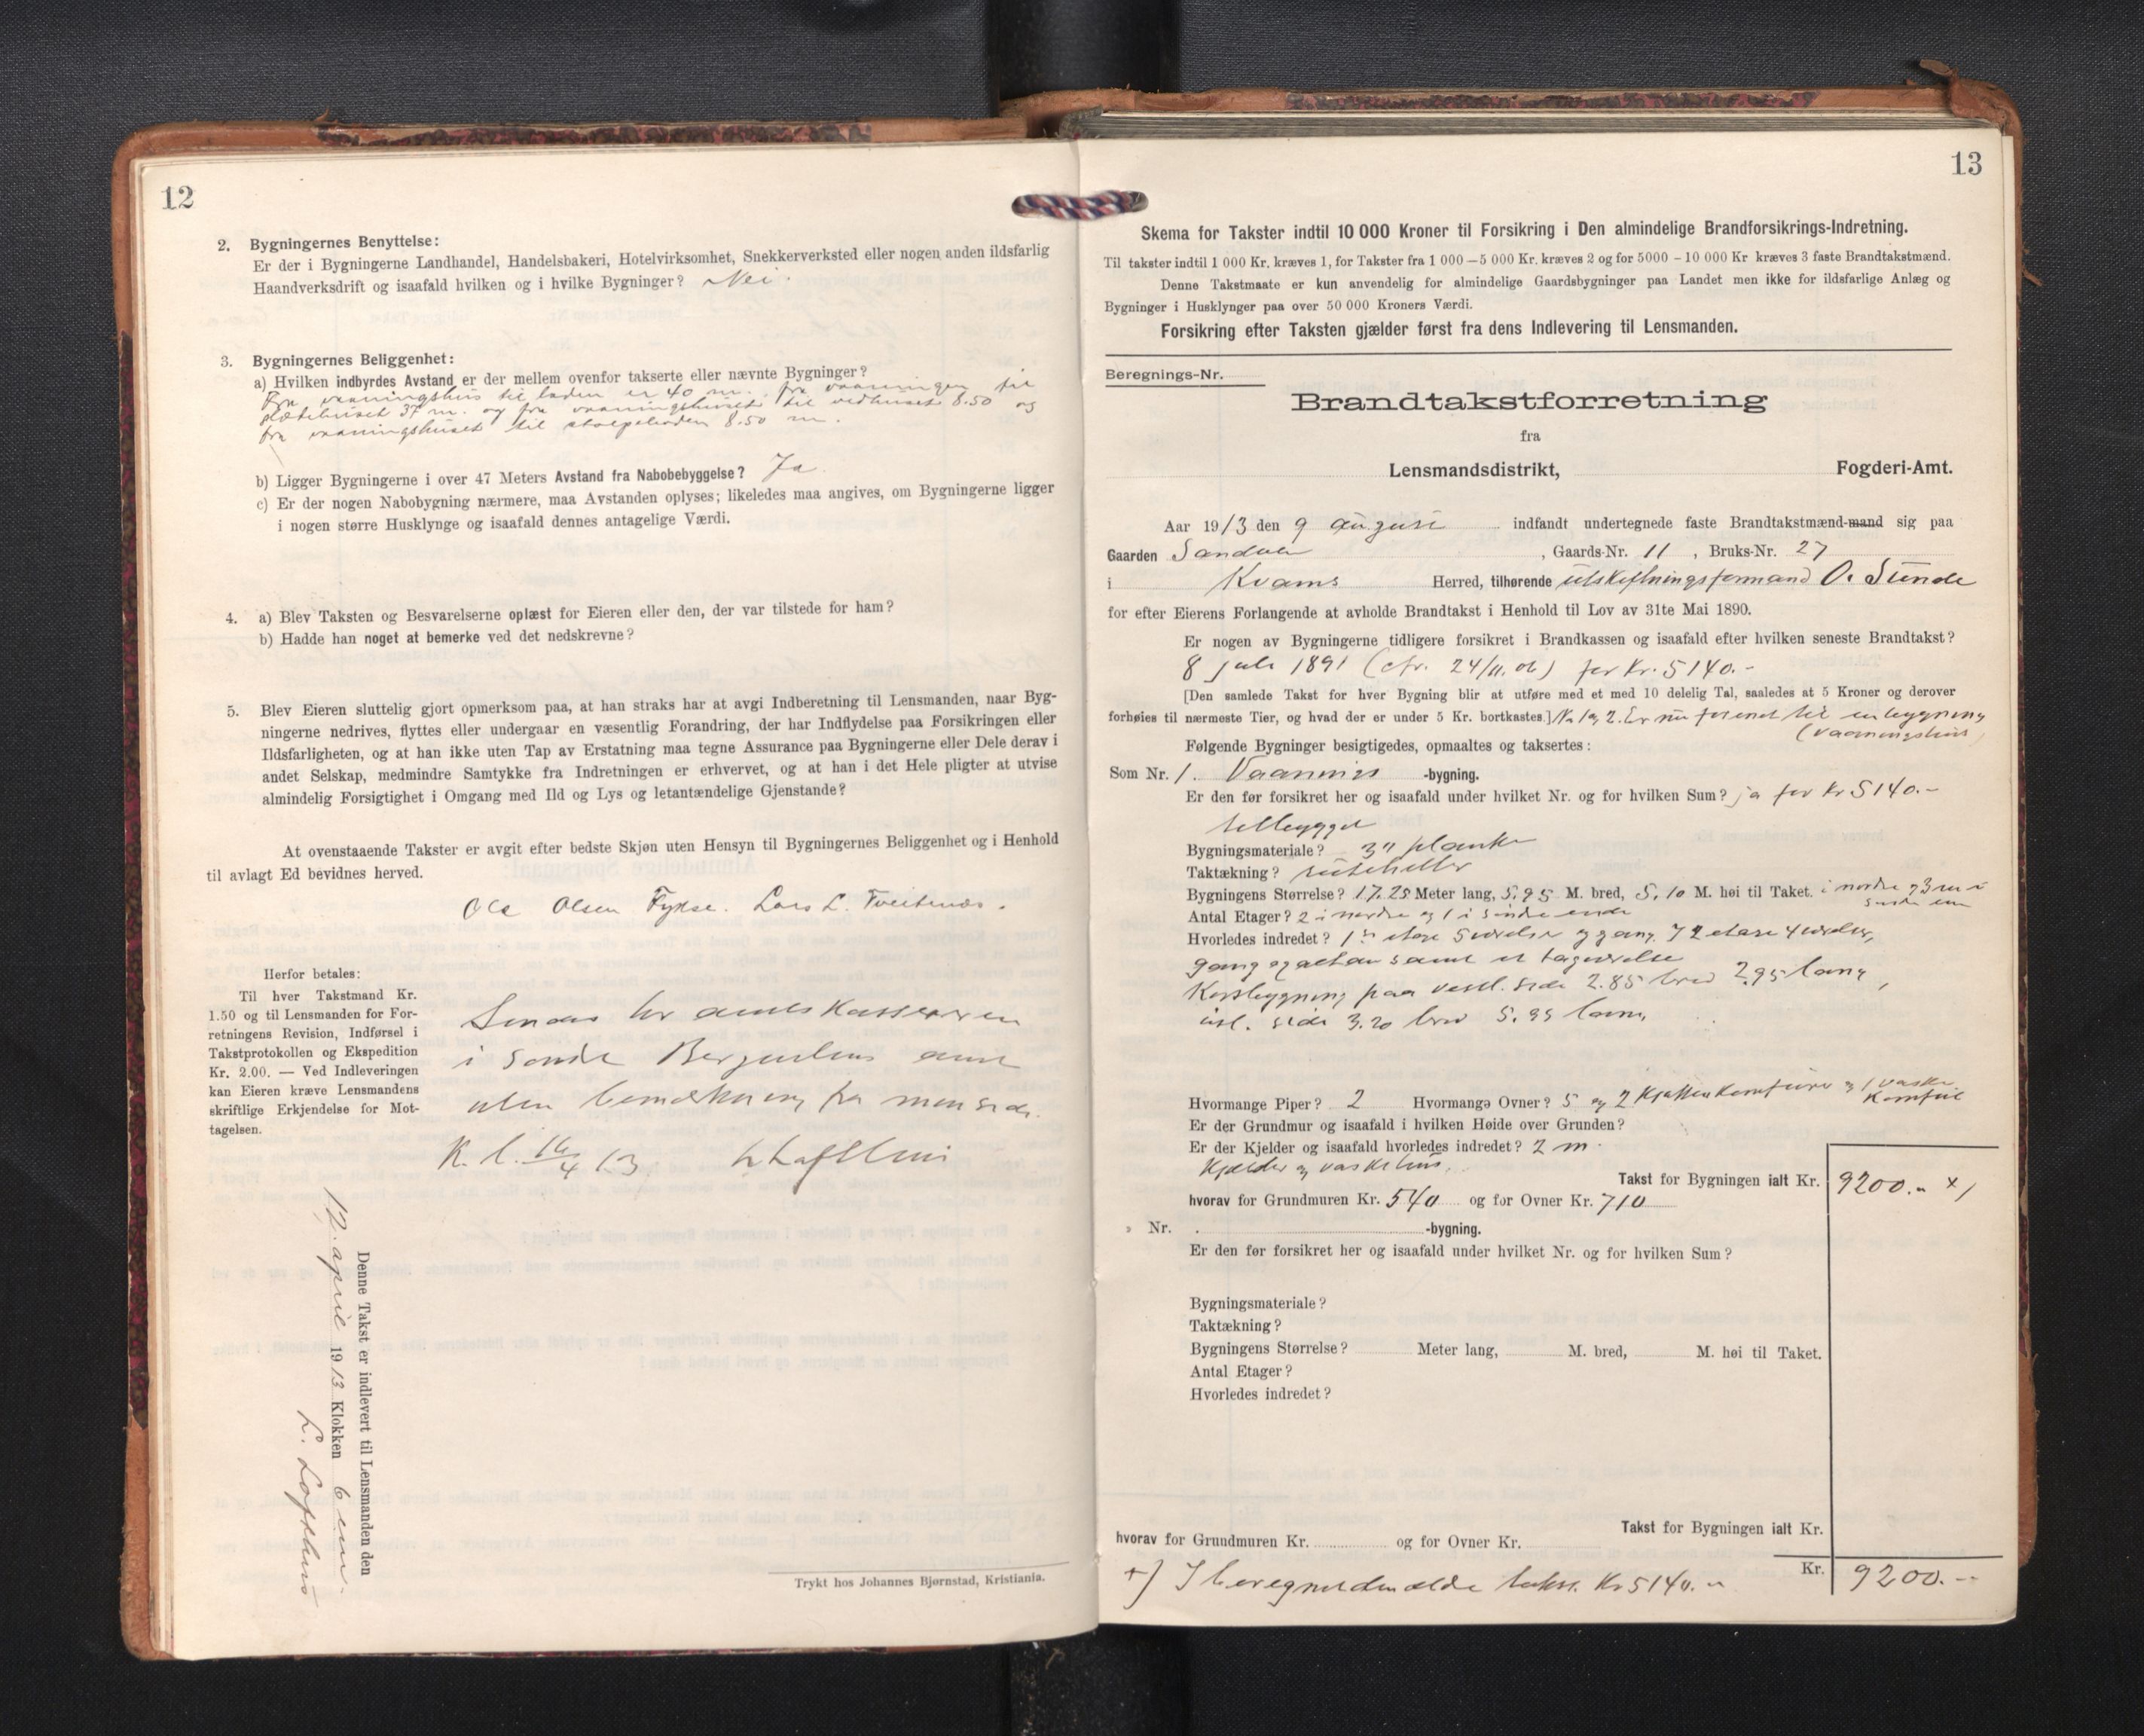 12
2. Bygningernes Benyttelse:
Er der i Bygningerne Landhandel, Handelsbakeri, Hotelvirksomhet, Snekkerverksted eller nogen anden ildsfarlig
Haandverksdrift og isaafald hvilken og i hvilke Bygninger? Nei.
3. Bygningernes Beliggenhet:
a) Hvilken indbyrdes Avstand er der mellem ovenfor takserte eller nævnte Bygninger?
Fra vaaningshus til laden er 40 m. fra vaaningen til
37 m. og fra vaaningshuset til vedhuset 8.50 og
fra vaaningshuset til stolpeboden 8.50 m.
b) Ligger Bygningerne i over 47 Meters Avstand fra Nabobebyggelse? Ja
c) Er der nogen Nabobygning nærmere, maa Avstanden oplyses; likeledes maa angives, om Bygningerne ligger
i nogen større Husklynge og isaafald dennes antagelige Værdi.
4. a) Blev Taksten og Besvarelserne oplæst for Eieren eller den, der var tilstede for ham?
b) Hadde han noget at bemerke ved det nedskrevne?
5. Blev Eieren sluttelig gjort opmerksom paa, at han straks har at avgi Indberetning til Lensmanden, naar Byg-
ningerne nedrives, flyttes eller undergaar en væsentlig Forandring, der har Indflydelse paa Forsikringen eller
Ildsfarligheten, og at han ikke uten Tap av Erstatning maa tegne Assurance paa Bygningerne eller Dele derav i
andet Selskap, medmindre Samtykke fra Indretningen er erhvervet, og at han i det Hele pligter at utvise
almindelig Forsigtighet i Omgang med Ild og Lys og letantændelige Gjenstande?
At ovenstaaende Takster er avgit efter bedste Skjøn uten Hensyn til Bygningernes Beliggenhet og i Henhold
til avlagt Ed bevidnes herved.
Ole Olsen Fykse. Lars L. Tveitenæs.
Herfor betales:
Til hver Takstmand Kr.
1.50 og til Lensmanden for For-
retningens Revision, Indførsel i
Takstprotokollen og Ekspedition
Kr. 2.00. — Ved Indleveringen
kan Eieren kræve Lensmandens
skriftlige Erkjendelse for Mot-
tagelsen.
Sendes hr amtskassereren
i Søndre Bergenhus amt
uten bemerkning fra min side.
K. l. 16/4 13 L Lofthus
Denne Takst er indlevert til Lensmanden den
12. april 1913 Klokken 6 em.
L. Lofthus
Trykt hos Johannes Bjørnstad, Kristiania.
13
Skema for Takster indtil 10 000 Kroner til Forsikring i Den almindelige Brandforsikrings-Indretning.
Til takster indtil 1 000 Kr. kræves 1, for Takster fra 1 000 — 5 000 Kr. kræves 2 og for 5000 - 10 000 Kr kræves 3 faste Brandtakstmænd.
Denne Takstmaate er kun anvendelig for almindelige Gaardsbygninger paa Landet men ikke for ildsfarlige Anlæg og
Bygninger i Husklynger paa over 50 000 Kroners Værdi.
Forsikring efter Taksten gjælder først fra dens Indlevering til Lensmanden.
Beregnings-Nr.
Brandtakstforretning
fra
Lensmandsdistrikt, Fogderi-Amt.
Aar 1913 den 9 august indfandt undertegnede faste Brandtakstmænd-mand sig paa
Gaarden Sandven, Gaards-Nr. 11, Bruks-Nr. 27
i Kvams Herred, tilhørende utskiftningsformand O. Sunde
for efter Eierens Forlangende at avholde Brandtakst i Henhold til Lov av 31te Mai 1890.
Er nogen av Bygningerne tidligere forsikret i Brandkassen og isaafald efter hvilken seneste Brandtakst?
8 juli 1891 (cfr. 24/11.06) for Kr. 5140.-
[Den samlede Takst for hver Bygning blir at utføre med et med 10 delelig Tal, saaledes at 5 Kroner og derover
forhøies til nærmeste Tier, og hvad der er under 5 Kr. bortkastes.] No 1 og 2. Er nu forenet til en bygning
(Vaaningshus)
Følgende Bygninger besigtigedes, opmaaltes og taksertes:
Som Nr. 1. Vaanings -bygning.
Er den før forsikret her og isaafald under hvilket Nr. og for hvilken Sum? ja for Kr 5140.-
tilbygget
Bygningsmateriale? 3" planke
Taktækning? ruteheller
Bygningens Størrelse? 17.25 Meter lang, 5.95 M. bred, 5.10 M. høi til Taket. i nordre og 3 m i
søndre ende
Antal Etager? 2 i nordre og 1 i søndre ende
Hvorledes indredet? 1ste etage 5 værelser og gang. I 2 etage 4 værelser,
gang og altan samt et tagværelse
Korsbygning paa vestl. side 2.85 bred 2.95 lang,
østl. side 3.20 bred 5.95 lang.
Hvormange Piper? 2 Hvormange Ovner? 5 og 2 Kjøkkenkomfurer og 1 vaske
komfur
Er der Grundmur og isaafald i hvilken Høide over Grunden?
Er der Kjelder og isaafald hvorledes indredet? 2 m
Kjelder og vaskehus.
Takst for Bygningen ialt Kr. 9200.- x)
hvorav for Grundmuren Kr. 540 og for Ovner Kr. 710
» Nr. -bygning.
Er den før forsikret her og isaafald under hvilket Nr. og for hvilken Sum?
Bygningsmateriale?
Taktækning?
Bygningens Størrelse? Meter lang, M. bred, M. høi til Taket.
Antal Etager?
Hvorledes indredet?
Takst for Bygningen ialt Kr.
hvorav for Grundmuren Kr. og for Ovner Kr.
Kr. 9200.--
x) Iberegnet den ældre takst. Kr 5140.-